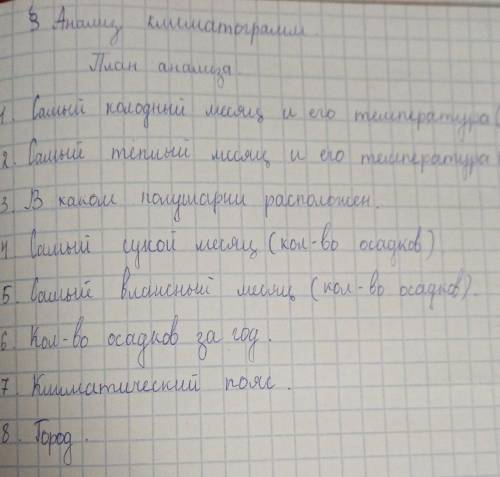 § Анализ климатограмм.
План анализа
1. Самый холодный месяц и его температура (
2. Самый тёплый месяц и его температура (
3. В каком полушарии расположен.
4. Самый сухой месяц (кол-во осадков)
5. Самый влажный месяц (кол-во осадков).
6. Кол-во осадков за год.
7. Климатический пояс.
8. Город.